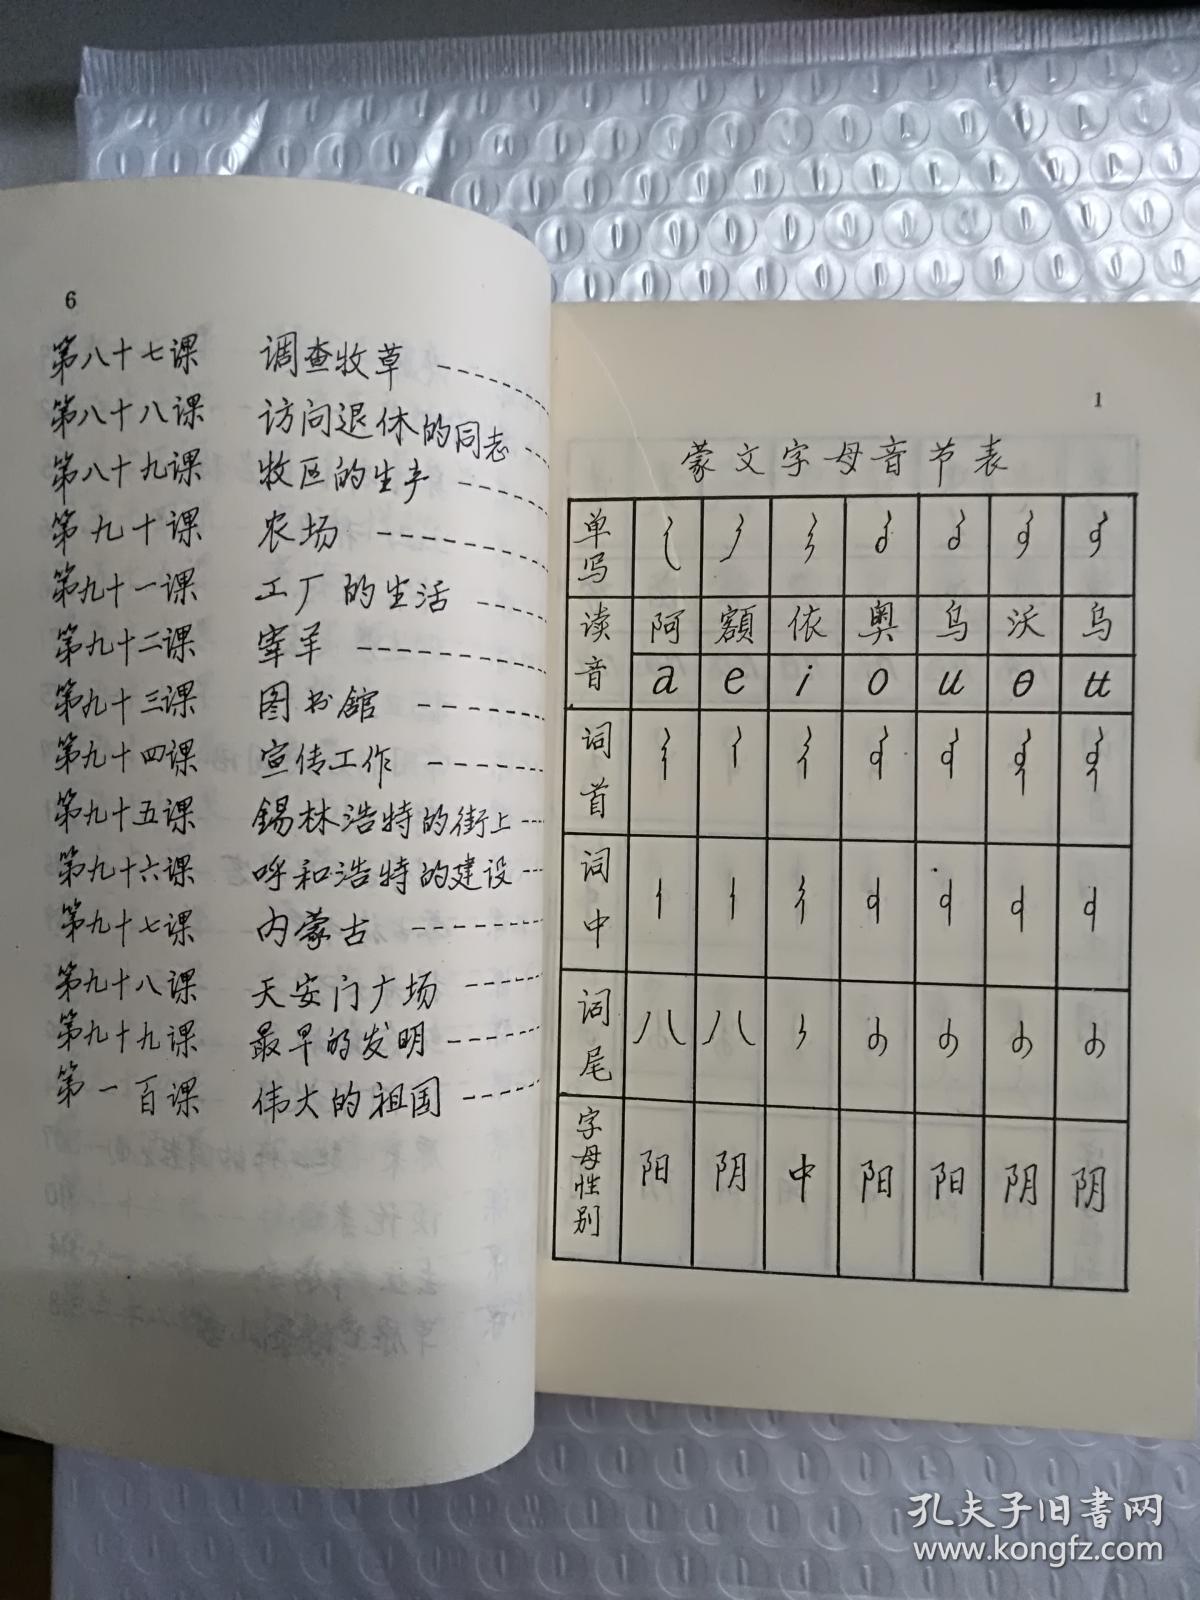 6
第八十七课 调查牧草
第八十八课 访问退休的同志
第八十九课 牧区的生产
第九十课 农场
第九十一课 工厂的生活
第九十二课 宰羊
第九十三课 图书館
第九十四课 宣传工作
第九十五课 錫林浩特的街上
第九十六课 呼和浩特的建设
第九十七课 内蒙古
第九十八课 天安门广场
第九十九课 最早的发明
第一百课 伟大的祖国
1
蒙文字母音节表
单写
读音 阿 額 依 奥 乌 沃 乌
a e i o u ө ʉ
词首
词中
词尾
字母性别 阳 阴 中 阳 阳 阴 阴
孔夫子旧書网
www.kongfz.com